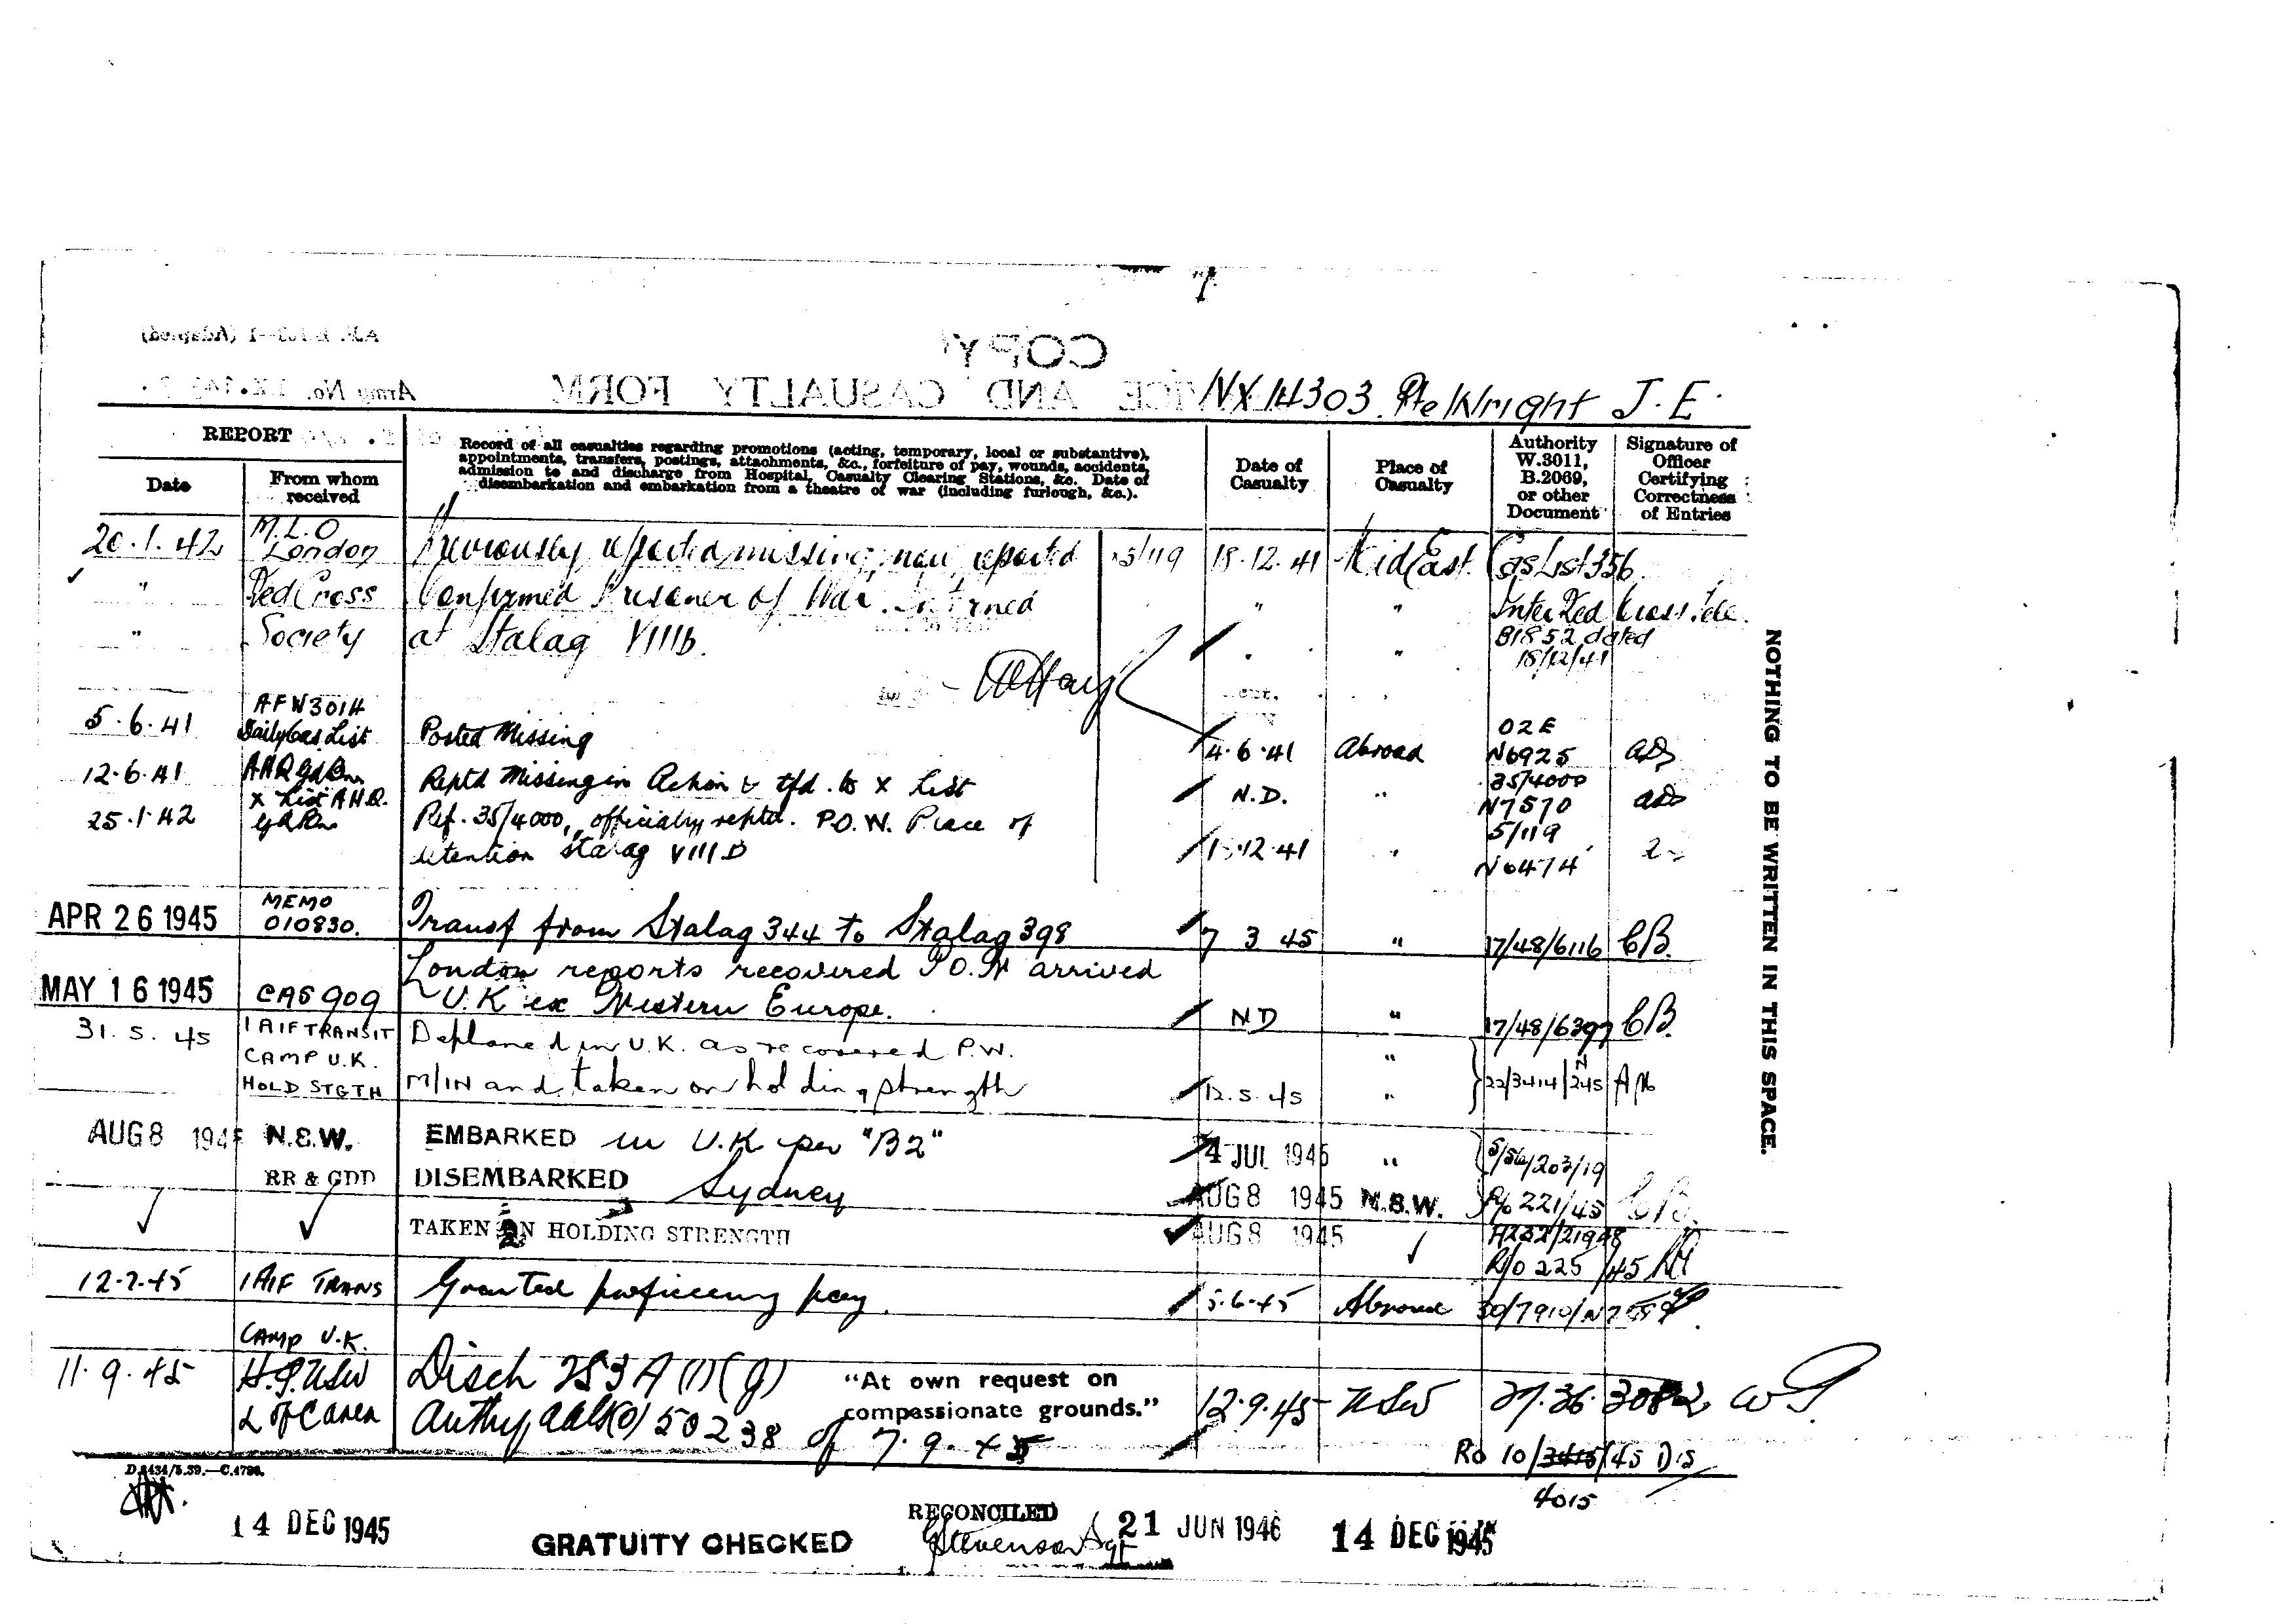 COPY
SERVICE AND CASUALTY FORM
Army No.
NX 14303 Pte Wright J. E.
REPORT
Date
From whom received
Record of all casualties regarding promotions (acting, temporary, local or substantive),
appointments, transfers, postings, attachments, &c., forfeiture of pay, wounds, accidents,
admission to and discharge from Hospital, Casualty Clearing Stations, &c. Date of
disembarkation and embarkation from a theatre of war (including furlough, &c.).
Date of Casualty
Place of Casualty
Authority W.3011, B.2069, or other Document
Signature of Officer Certifying Correctness of Entries
20.1.42 M.L.O London Previously reported missing, now reported 5/119 18.12.41 Mid East Cas List 356
" Red Cross Confirmed Prisoner of War. Interned " " Inter Red Cross tele.
" Society at Stalag VIIIb. " " B1852 dated
18/12/41
5.6.41 AFW3014 Daily Cas List Posted Missing 4.6.41 Abroad 02E N6925
12.6.41 AHQ Reptd Missing in Action & tfd. to X List N.D. " 35/4000 N7570
25.1.42 X List A.H.Q. Ref. 35/4000, officially reptd. P.O.W. Place of 5/119
detention Stalag VIII B 18.12.41 " N6474
APR 26 1945 MEMO 010830. Transf from Stalag 344 to Stalag 398 7 3 45 " 17/48/6116 CB.
London reports recovered P.O.W arrived
MAY 16 1945 CAS 909 U.K ex Western Europe. ND " 17/48/6397 CB.
31.5.45 1 AIF TRANSIT Deplaned in U.K. as recovered P.W. "
CAMP U.K.
HOLD STGTH M/IN and taken on holding strength 12.5.45 " 22/3414/N245
AUG 8 1945 N.S.W. EMBARKED in U.K per "B2" 4 JUL 1945 " 5/56/203/19
RR & GDD DISEMBARKED Sydney AUG 8 1945 N.S.W. R/o 221/45 CB.
TAKEN ON HOLDING STRENGTH AUG 8 1945
R/o 225/45
12.7.45 1 AIF TRANS Granted proficiency pay. 5.6.45 Abroad
CAMP U.K.
11.9.45 Disch 253A (1)(g) "At own request on
compassionate grounds." 12.9.45 NSW 27.36.3082
L of C area Authy 50238 of 7.9.45
Ro 10/3415/45 Dis
4015
D.2434/5.39.—C.4790.
14 DEC 1945
GRATUITY CHECKED
RECONCILED
Stevenson Sgt
21 JUN 1946
14 DEC 1945
NOTHING TO BE WRITTEN IN THIS SPACE.